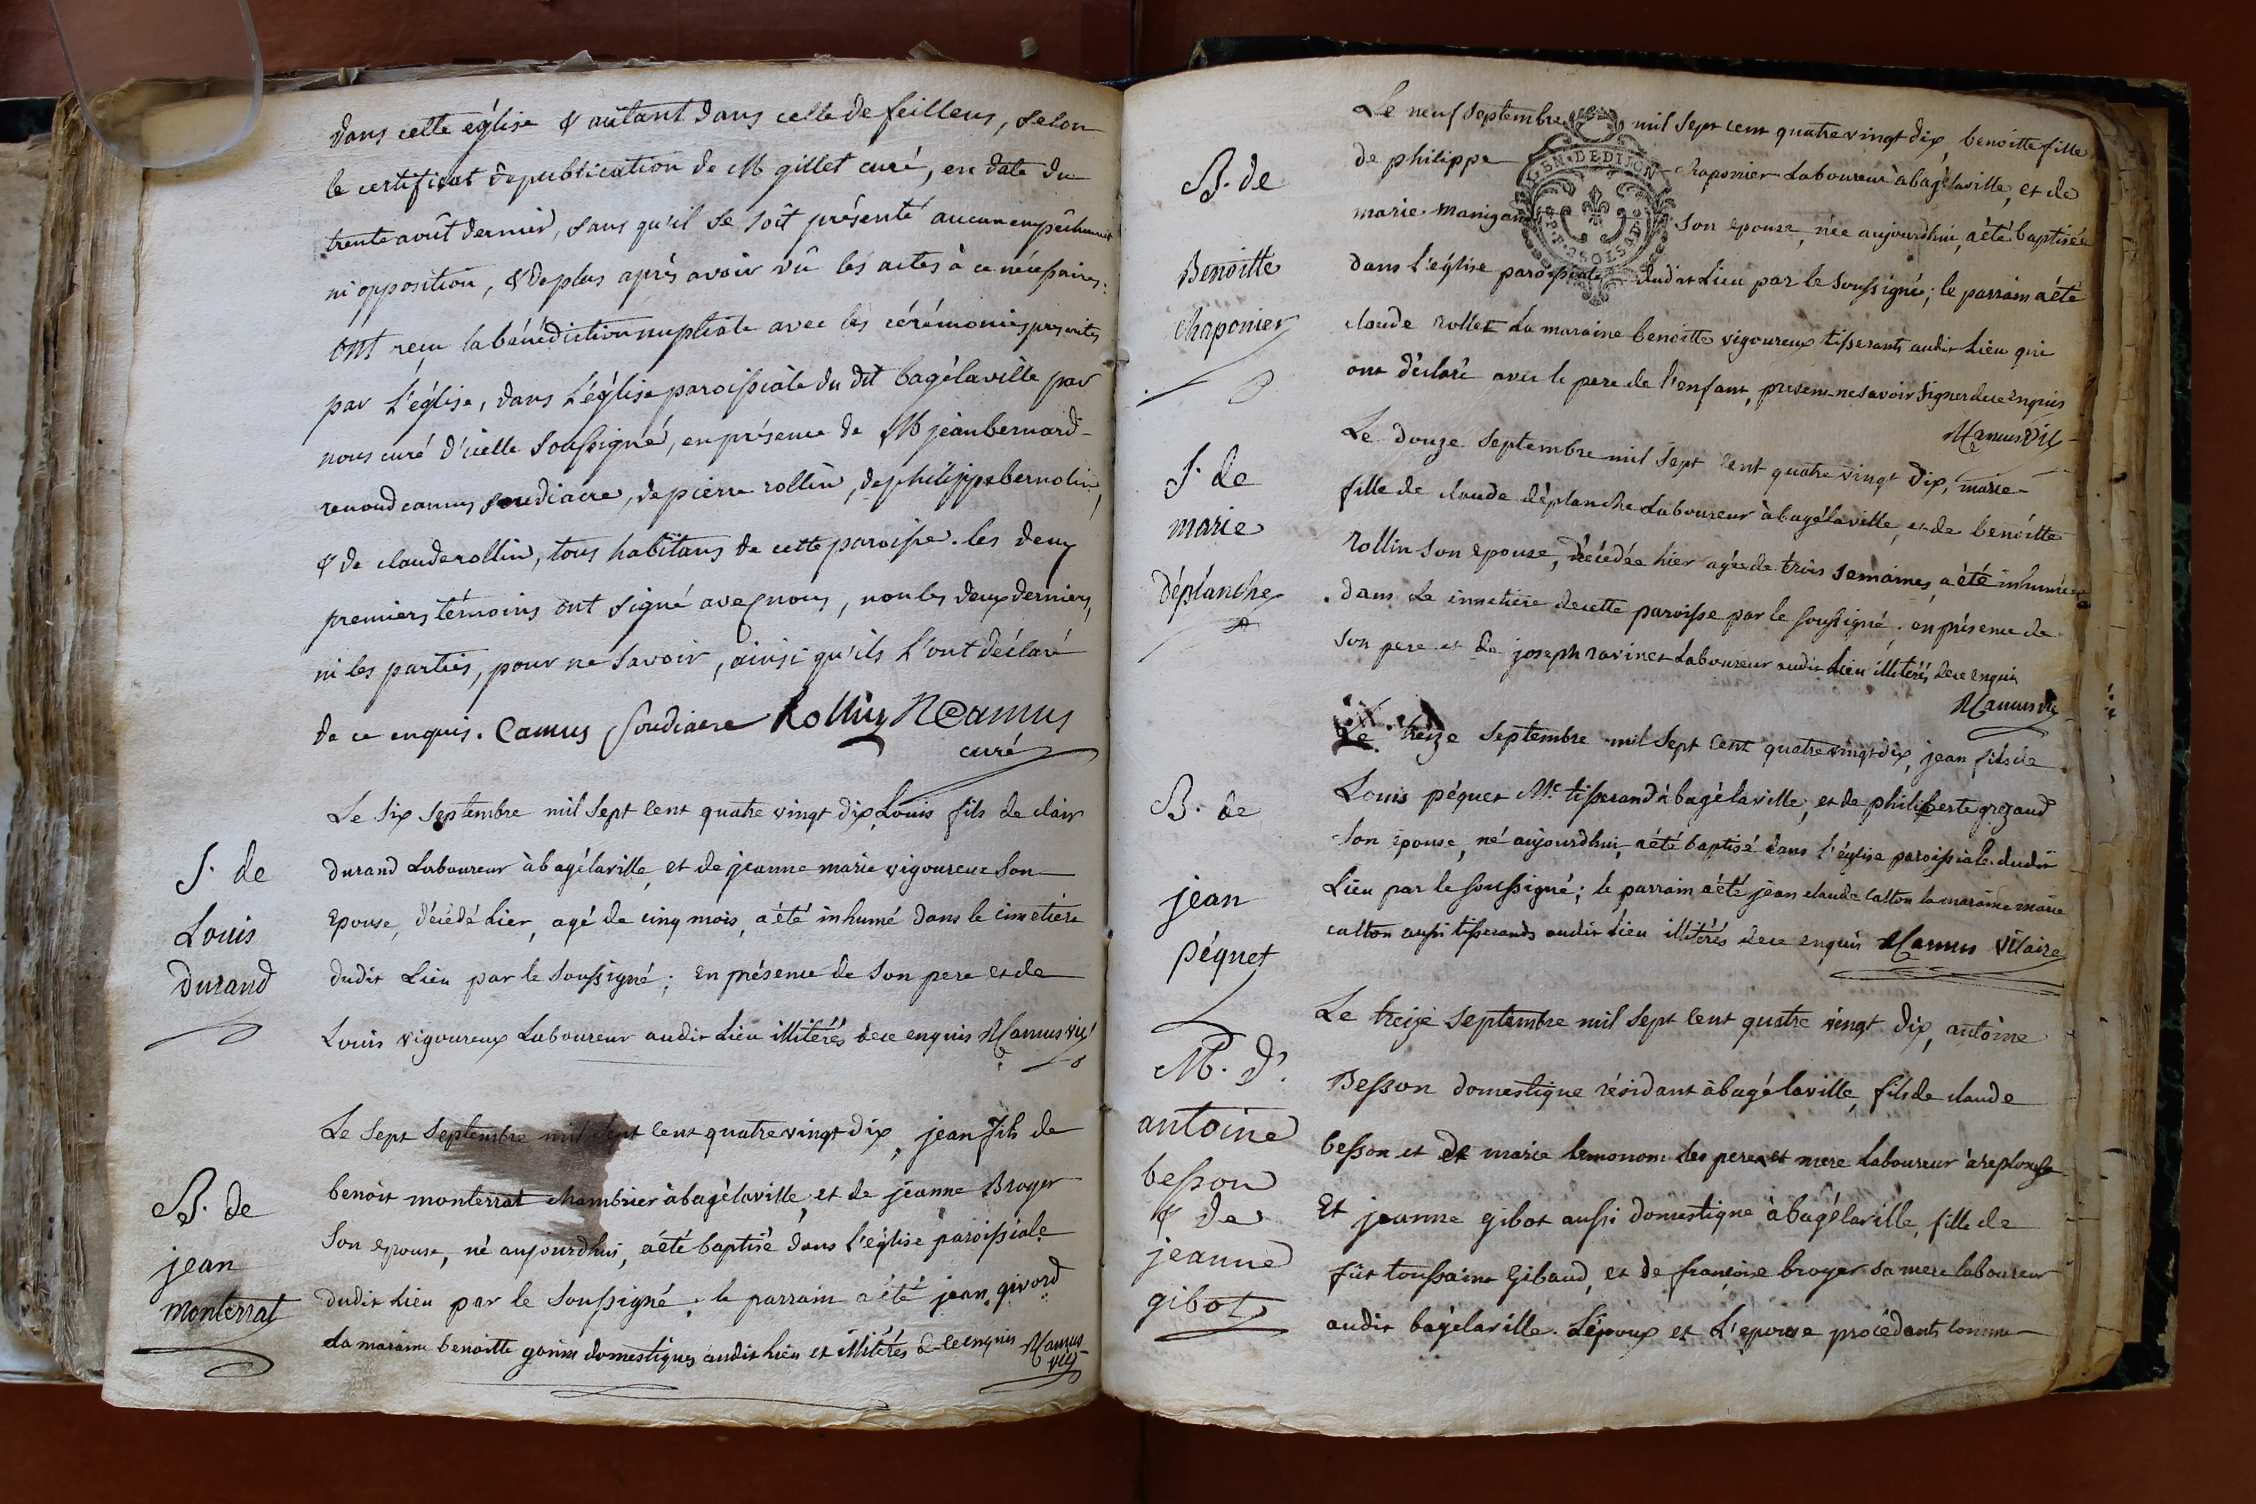 dans cette église & autant dans celle de feillens, selon
le certificat de publication de Mr gillet curé, en date du
trente août dernier, sans qu'il se soit présenté aucun empêchement
ni opposition, & de plus après avoir vû les actes à ce nécessaires,
ont reçu la bénédiction nuptiale avec les cérémonies prescrites
par l'église, dans l'église paroissiale du dit bagélaville par
nous curé d'icelle soussigné, en présence de Mr jean bernard
renoud camus soudiacre, de pierre rollin, de philippe bernolin,
& de claude rollin, tous habitans de cette paroisse. les deux
premiers témoins ont signé avec nous, non les deux derniers,
ni les parties, pour ne savoir, ainsi qu'ils l'ont déclaré
de ce enquis. Camus soudiacre Rollin RCamus
curé
S. de
Louis
Durand
Le six septembre mil sept cent quatre vingt dix, Louis fils de clair
durand Laboureur à bagélaville, et de jeanne marie vigoureux son
epouse, décédé hier, agé de cinq mois, a été inhumé dans le cimetière
dudit Lieu par le soussigné; en présence de son pere et de
Louis vigoureux Laboureur audit Lieu illitérés de ce enquis RCamus vic
B. de
jean
monterrat
Le sept septembre mil sept cent quatre vingt dix, jean fils de
benoit monterrat chambrier à bagélaville, et de jeanne Broyer
son epouse, né aujourdhui, a été baptisé dans l'église paroissiale
dudit Lieu par le soussigné. le parrain a été jean givord
la maraine benoitte domestiques audit Lieu et illitérés de ce enquis RCamus
vic
B. de
Benoitte
chaponier
Le neuf septembre mil sept cent quatre vingt dix, benoitte fille
de philippe chaponier Laboureur à bagélaville, et de
marie manigand son epouse, née aujourdhui, a été baptisée
dans l'église paroissiale dudit Lieu par le soussigné; le parrain a été
claude rollet La maraine benoitte vigoureux tisserants audit Lieu qui
ont déclaré avec le pere de l'enfant, présent ne savoir signer de ce enquis
RCamus vic
GEN. DE DIJON
S. de
marie
déplanche
Le douze septembre mil sept cent quatre vingt dix, marie
fille de claude déplanche Laboureur à bagélaville, et de benoitte
rollin son epouse, décédée hier agée de trois semaines, a été inhumée
dans Le cimetière de cette paroisse par le soussigné. en présence de
son pere et de joseph ravinet Laboureur audit Lieu illitérés de ce enquis
RCamus vic
B. de
jean
péquet
Le treize septembre mil sept cent quatre vingt dix, jean fils de
Louis péquet Me tisserand à bagélaville, et de philiberte grezaud
son epouse, né aujourdhui, a été baptisé dans l'église paroissiale dudit
Lieu par le soussigné; le parrain a été jean claude catton la maraine marie
catton aussi tisserands audit Lieu illitérés de ce enquis RCamus vicaire
M. d'
antoine
besson
& de
jeanne
gibot
Le treize septembre mil sept cent quatre vingt dix, antoine
Besson domestique résidant à bagélaville, fils de claude
besson et de marie lemonom les pere et mere Laboureur à replonge
Et jeanne gibot aussi domestique à bagélaville, fille de
füt toussaint Gibaud, et de françoise broyer sa mere laboureur
audit bagélaville. L'époux et l'epouse procédants comme